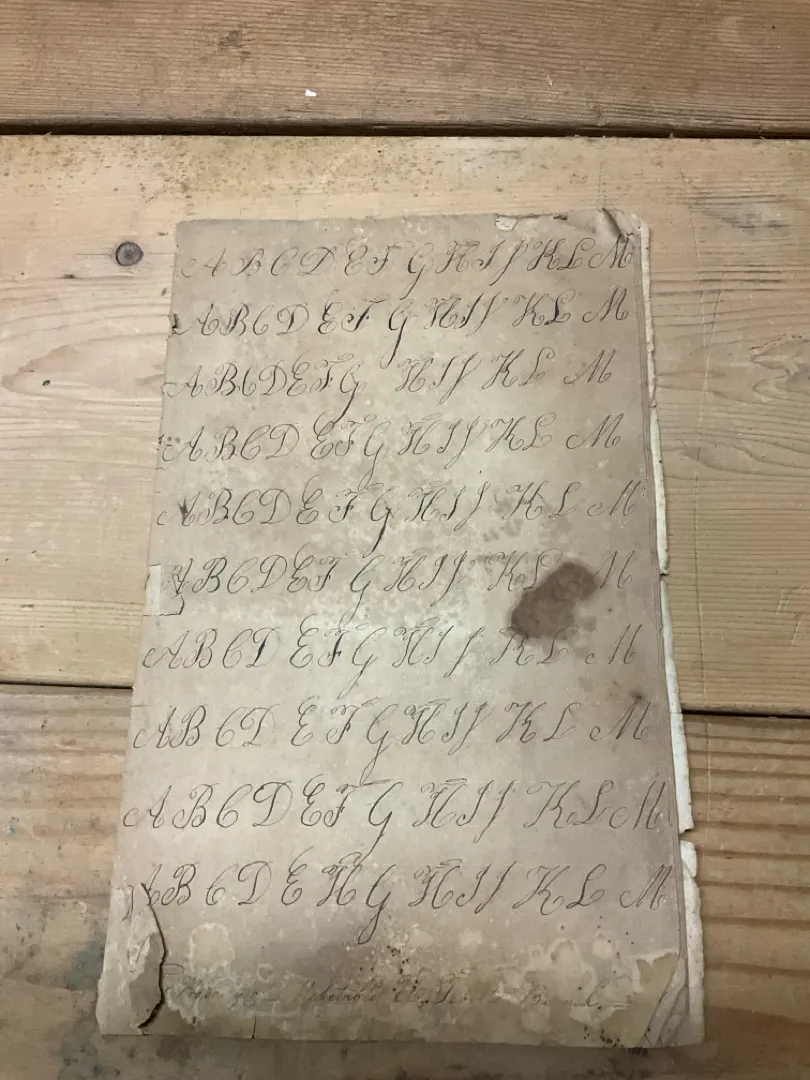 A B C D E F G H I J K L M
A B C D E F G H I J K L M
A B C D E F G H I J K L M
A B C D E F G H I J K L M
A B C D E F G H I J K L M
A B C D E F G H I J K L M
A B C D E F G H I J K L M
A B C D E F G H I J K L M
A B C D E F G H I J K L M
A B C D E H G H I J K L M